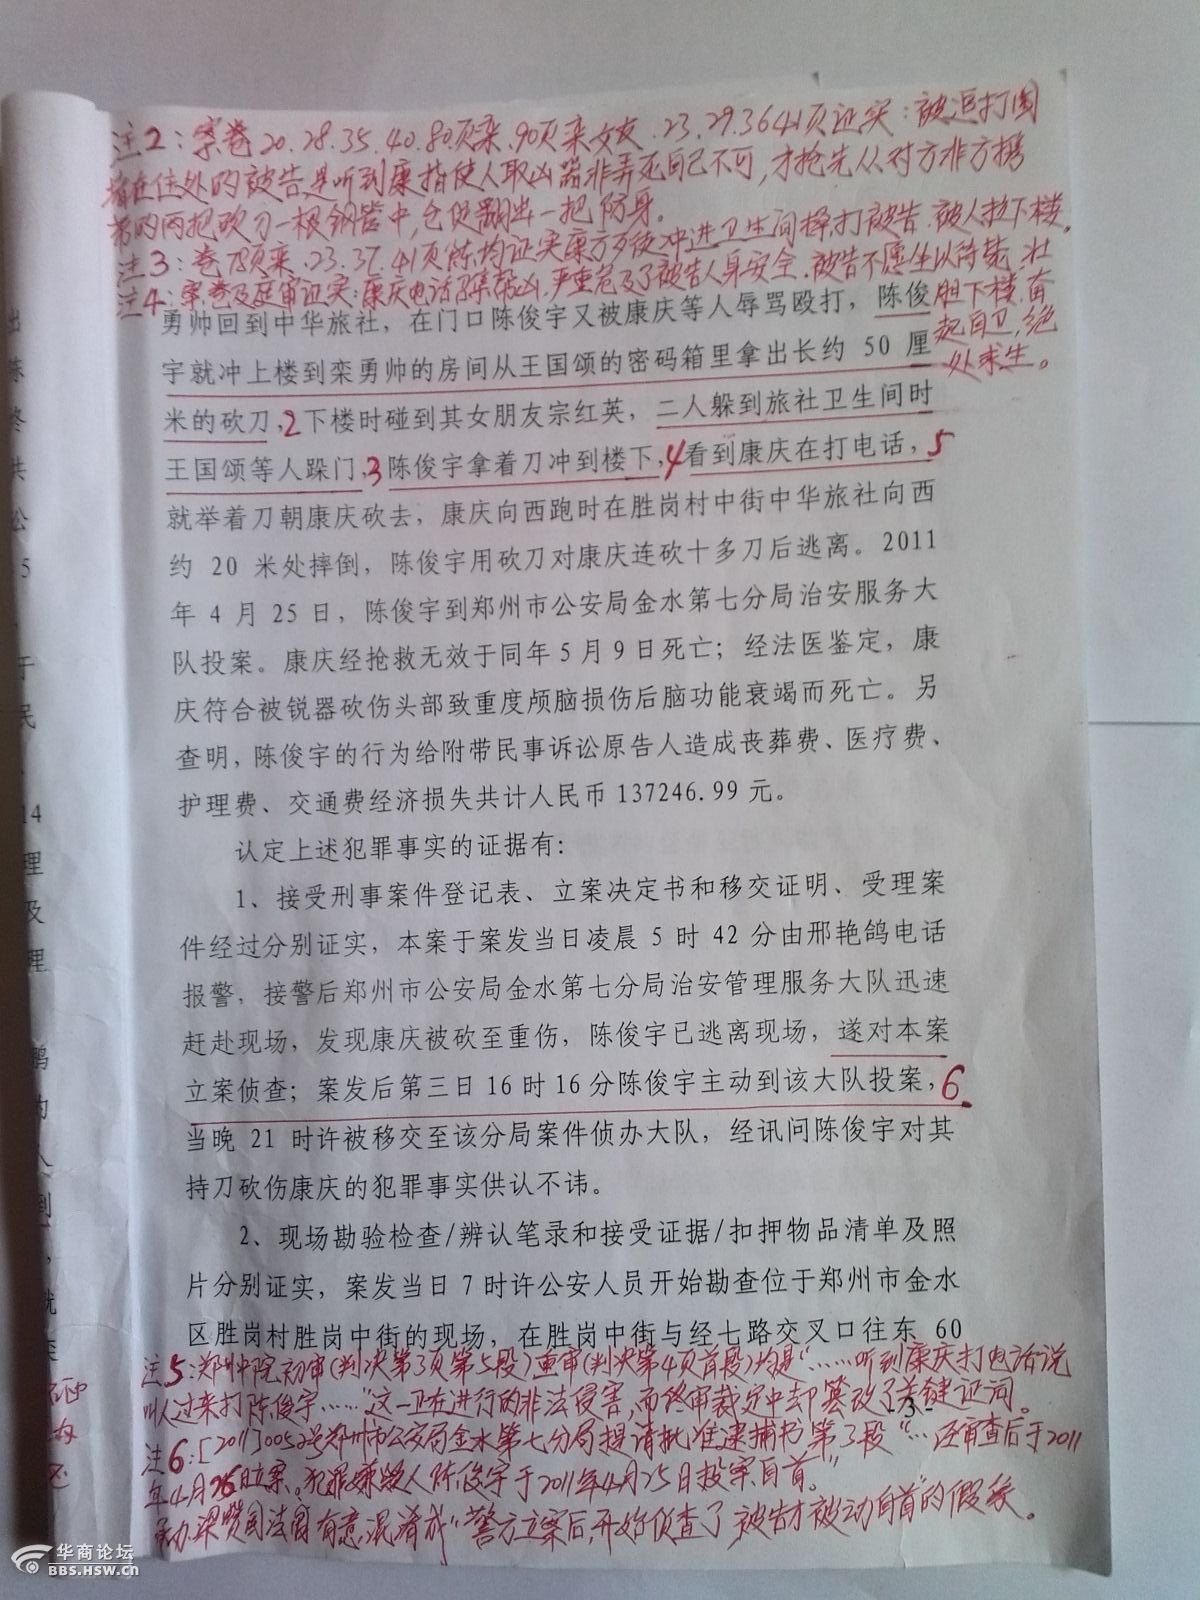 注2：案卷20.28.35.40.80页栾.90页栾女友.23.29.36.41页证实：被追打围
在住处的被告是听到康指使人取凶器非弄死自己不可，才抢先从对方非方携
带的两把砍刀一根钢管中，仓促翻出一把防身。
注3：卷78页栾.23.37.41页陈均证实康方歹徒冲进卫生间揪打被告.被人拉下楼。
注4：案卷及庭审证实：康庆电话召集帮凶.严重危及了被告人身安全.被告不愿坐以待毙.壮
胆下楼.奋
起自卫，绝
处求生。
勇帅回到中华旅社，在门口陈俊宇又被康庆等人辱骂殴打，陈俊
宇就冲上楼到栾勇帅的房间从王国颂的密码箱里拿出长约 50 厘
米的砍刀，2下楼时碰到其女朋友宗红英，二人躲到旅社卫生间时
王国颂等人跺门，3陈俊宇拿着刀冲到楼下，4看到康庆在打电话，5
就举着刀朝康庆砍去，康庆向西跑时在胜岗村中街中华旅社向西
约 20 米处摔倒，陈俊宇用砍刀对康庆连砍十多刀后逃离。2011
年 4 月 25 日，陈俊宇到郑州市公安局金水第七分局治安服务大
队投案。康庆经抢救无效于同年 5 月 9 日死亡；经法医鉴定，康
庆符合被锐器砍伤头部致重度颅脑损伤后脑功能衰竭而死亡。另
查明，陈俊宇的行为给附带民事诉讼原告人造成丧葬费、医疗费、
护理费、交通费经济损失共计人民币 137246.99 元。
认定上述犯罪事实的证据有：
1、接受刑事案件登记表、立案决定书和移交证明、受理案
件经过分别证实，本案于案发当日凌晨 5 时 42 分由邢艳鸽电话
报警，接警后郑州市公安局金水第七分局治安管理服务大队迅速
赶赴现场，发现康庆被砍至重伤，陈俊宇已逃离现场，遂对本案
立案侦查；案发后第三日 16 时 16 分陈俊宇主动到该大队投案，6
当晚 21 时许被移交至该分局案件侦办大队，经讯问陈俊宇对其
持刀砍伤康庆的犯罪事实供认不讳。
2、现场勘验检查/辨认笔录和接受证据/扣押物品清单及照
片分别证实，案发当日 7 时许公安人员开始勘查位于郑州市金水
区胜岗村胜岗中街的现场，在胜岗中街与经七路交叉口往东 60
注5：郑州中院初审(判决第3页第5段)重审(判决第4页首段)均是“……听到康庆打电话说
叫人过来打陈俊宇……”这一正在进行的非法侵害，而终审裁定中却篡改了关键证词。
- 3 -
注6：[2011]0052号郑州市公安局金水第七分局提请批准逮捕书第3段“…还审查后于2011
年4月26日立案。犯罪嫌疑人陈俊宇于2011年4月25日投案自首。”
承办梁晓司法官有意混淆成“警方立案后，开始侦查了被告才被动自首”的假象。
华商论坛
BBS.HSW.CN